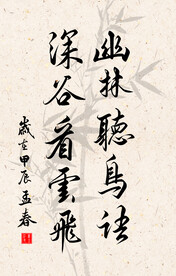 幽林聽鳥語
深谷看雲飛
歲在甲辰孟春